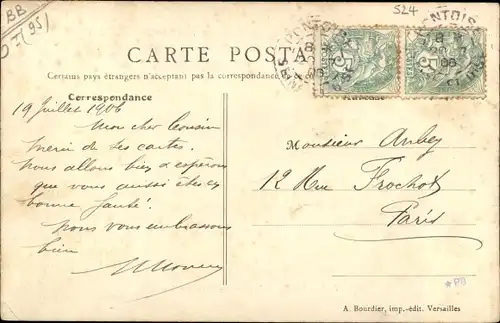 BB
(95)
524
CARTE POSTALE
Certains pays étrangers n'acceptant pas la correspondance
Correspondance
19 Juillet 1906
Mon cher Cousin
Merci de tes cartes.
Nous allons bien & espérons
que vous aussi êtes en
bonne santé.
Nous vous embrassons
bien
Monsieur Aubey
12 Rue Frochot
Paris
*PB
A. Bourdier, imp.-édit. Versailles